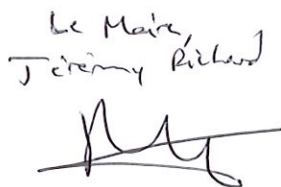 Le Maire,
Jérémy Richard